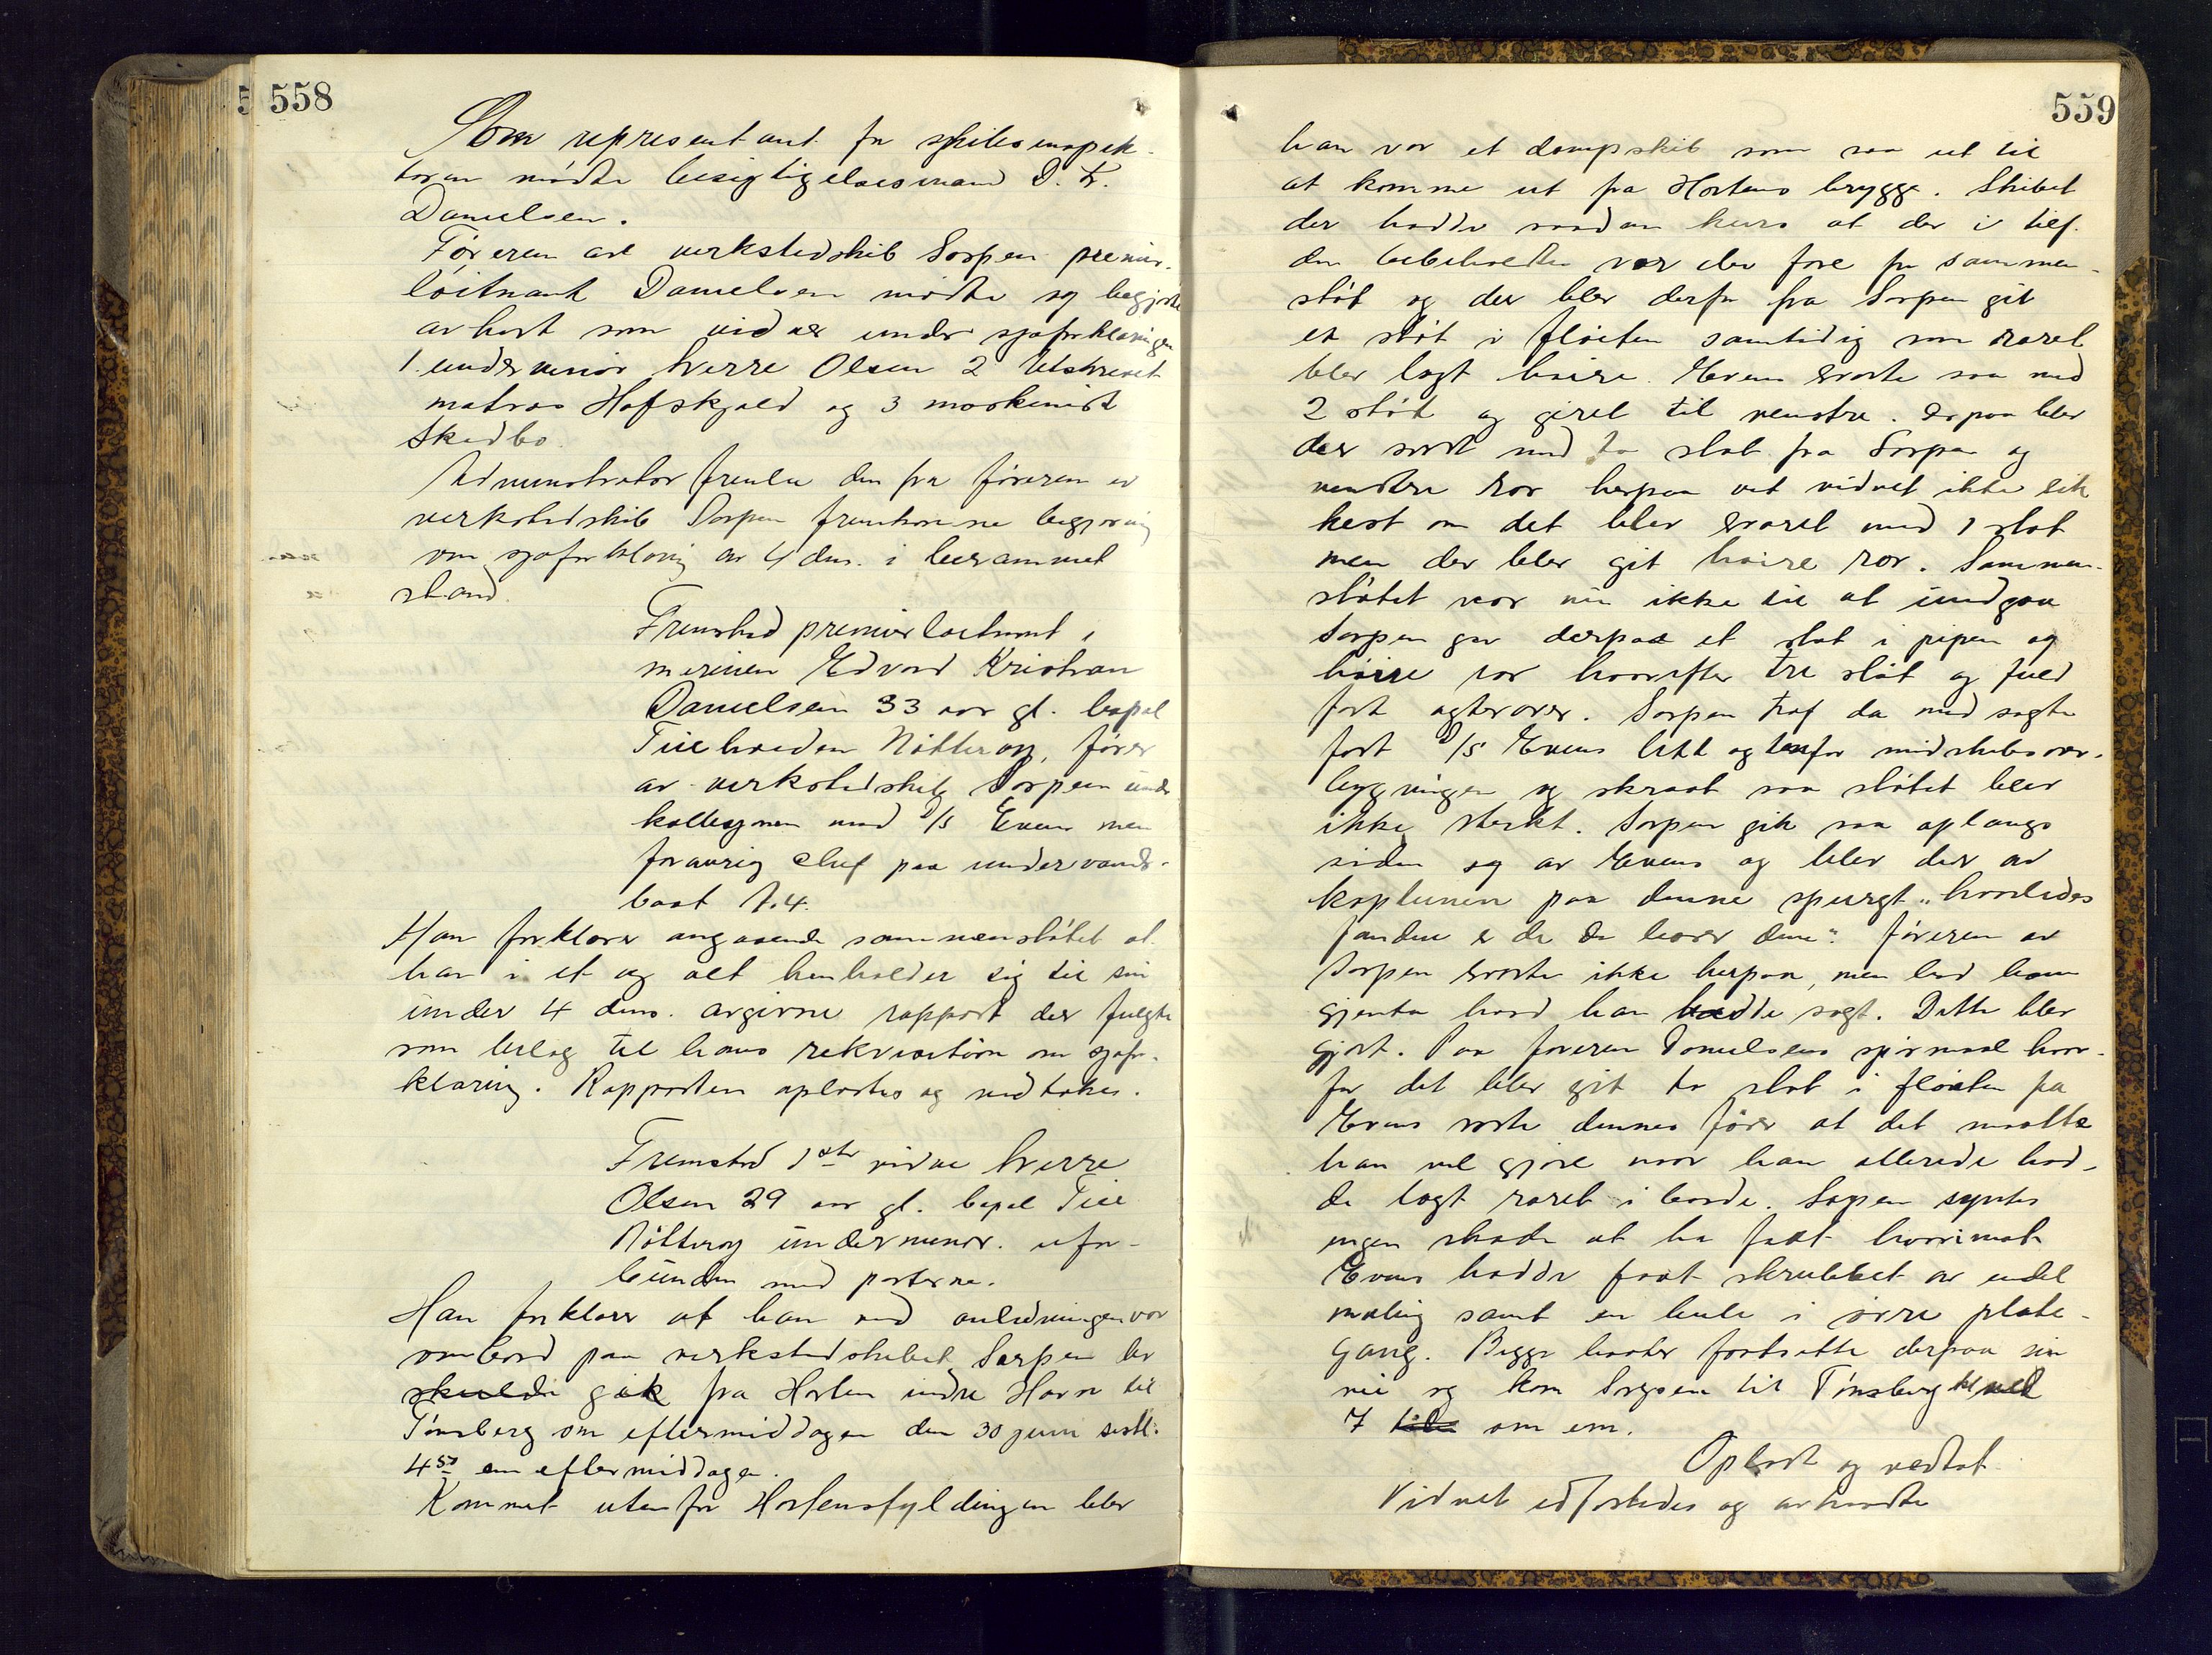 558
Som representant for skibsinspek-
tøren mødte besigtigelsesmand D. Fr.
Danielsen.
Føreren av verkstedskib Sarpen premier-
løitnant Danielsen mødte og begjærte
avhørt som vidner under sjøforklaringen
1. underminør Sverre Olsen 2 Utskrevet
matros Hafskjold og 3 maskinist
Skedbo.
Administrator fremla den fra føreren av
verkstedskib Sarpen fremkomne begjæring
om sjøforklaring av 4 dns. i berammet
stand.
Fremstod premierløitnant i
marinen Edvard Kristian
Danielsen 33 aar gl. bopæl
Nøtterøy, fører
av verkstedskib Sarpen under
kollisjonen med D/S Evens men
forøvrig chef paa undervands-
baat A.4.
Han forklarer angaaende sammenstøtet at
han i et og alt henholder sig til sin
under 4 dens. avgivne rapport der fulgte
som bilag til hans rekvisition om sjøfor-
klaring. Rapporten oplæstes og vedtokes.
Fremstod 1ste vidne Sverre
Olsen 29 aar gl. bopæl Tiee
Nøtterøy underminør. ufor-
bunden med parterne.
Han forklarer at han ved anledningen var
ombord paa verkstedskibet Sarpen der
skulde gik fra Horten indre Havn til
Tønsberg om eftermiddagen den 30 juni sistl.
4 50 em eftermiddagen.
Kommet utenfor Hortensfyldingen blev
559
han var et dampskib som saa ut til
at komme ut fra Hortens brygge. Skibet
der hadde saadan kurs at der i tilf.
den bibeholdtes var der fare for sammen-
støt og der blev derfor fra Sarpen git
et støt i fløiten samtidig som roret
blev lagt høire. Evens svarte saa med
2 støt og giret til venstre. Derpaa blev
der svart med to støt fra Sarpen og
venstre ror herpaa vet vidnet ikke sik
kert om det blev svaret med 1 støt
men der blev git høire ror. Sammen-
støtet var nu ikke til at undgaa
Sarpen gav derpaa et støt i pipen og
høire ror hvorefter tre støt og fuld
fart agterover. Sarpen traf da med sagte
fart D/S Evens litt agtenfor midtskibsover-
bygningen og skraat saa støtet blev
ikke sterkt. Sarpen gik saa oplangs
siden og av Evens og blev der av
kapteinen paa denne spurgt „hvorledes
fanden er de De bærer dem“. Føreren av
Sarpen svarte ikke herpaa, men lod ham
gjenta hvad han hadde sagt. Dette blev
gjort. Paa føreren Danielsens spørsmaal hvor-
for det blev git to støt i fløiten fra
Evens svarte dennes fører at det maatte
han vel gjøre naar han allerede had-
de lagt roret i borde. Sarpen syntes
ingen skade at ha faat hvorimot
Evens hadde faat skrubbet av endel
maling samt en bule i øvre plate-
gang. Begge baater fortsatte derpaa sin
vei og kom Sarpen til Tønsberg kl ved
7 tiden om em.
Oplæst og vedtat.
Vidnet edfæstedes og avtraadte